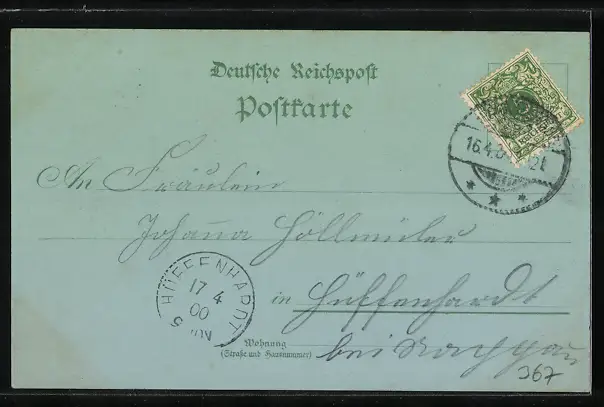 Deutsche Reichspost
Postkarte
16.4.
An Fräulein
Johanna Höllmüller
HÜFFENHARDT
17 4
00
in Hüffenhardt
Wohnung
(Straße und Hausnummer)
bei
367